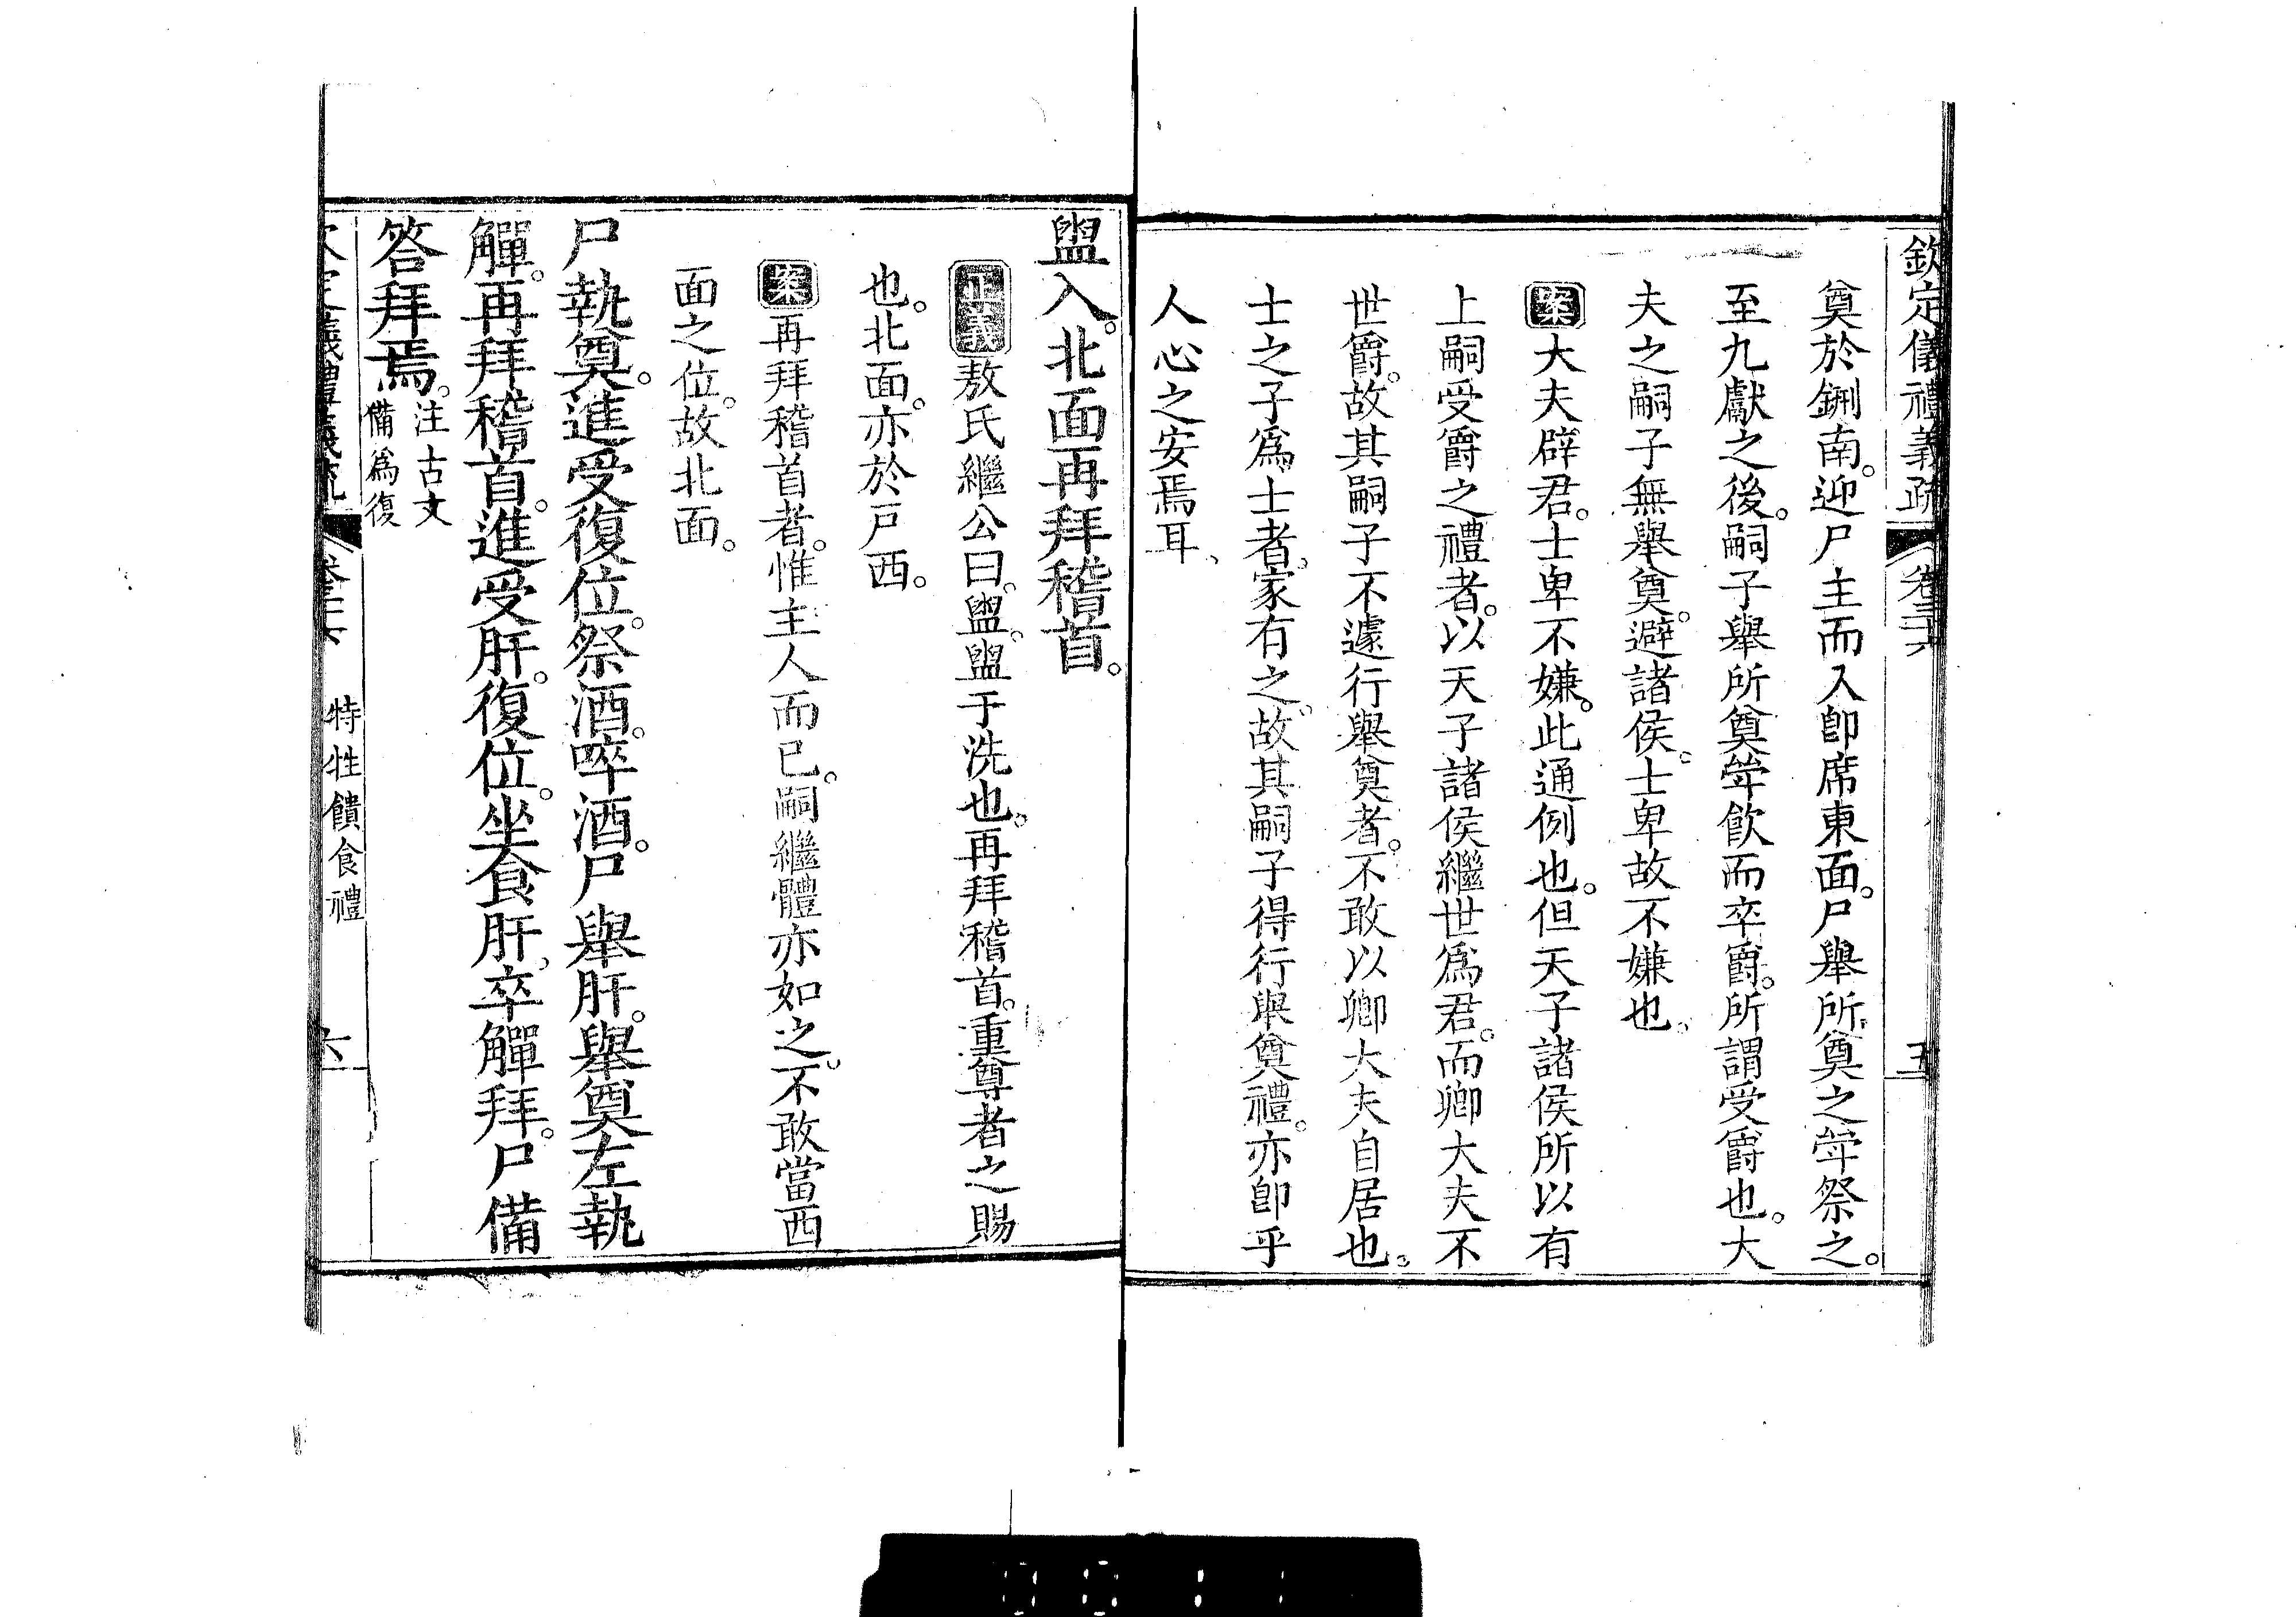 欽定儀禮義疏 卷三十六 五
奠於鉶南。迎尸主而入卽席東面。尸舉所奠之斚祭之。
至九獻之後。嗣子舉所奠斚飮而卒爵。所謂受爵也。大
夫之嗣子無舉奠。避諸侯。士卑故不嫌也。
案大夫辟君。士卑不嫌。此通例也。但天子諸侯所以有
上嗣受爵之禮者。以天子諸侯繼世爲君。而卿大夫不
世爵。故其嗣子不遽行舉奠者。不敢以卿大夫自居也。
士之子爲士者。家有之。故其嗣子得行舉奠禮。亦卽乎
人心之安焉耳、
盥入。北面再拜稽首。
正義敖氏繼公曰。盥。盥于洗也。再拜稽首。重尊者之賜
也。北面。亦於戸西。
案再拜稽首者。惟主人而已。嗣繼體亦如之。不敢當西
面之位。故北面。
尸執奠。進受復位。祭酒。啐酒。尸舉肝。舉奠左執
觶。再拜稽首。進受肝。復位。坐食肝。卒觶拜。尸備
答拜焉。注古文
備爲復
特牲饋食禮 六